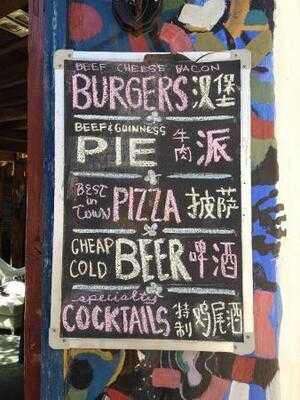 BEEF CHEESE BACON
BURGERS 汉堡
BEEF & GUINNESS
PIE 牛肉派
BEST in TOWN PIZZA 披萨
CHEAP COLD BEER 啤酒
specialty
COCKTAILS 特制 鸡尾酒